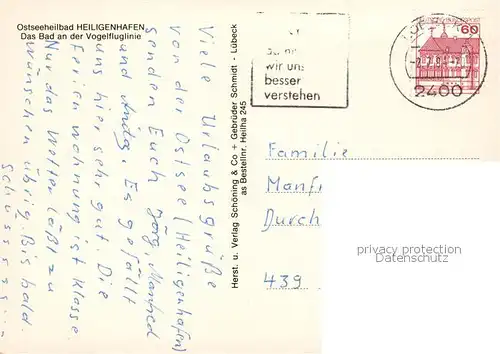 Ostseeheilbad HEILIGENHAFEN
Das Bad an der Vogelfluglinie
Viele Urlaubsgrüße
von der Ostsee (Heiligenhafen)
senden Euch Jörg, Manfred
und Andg. Es gefällt
uns hier sehr gut. Die
Ferienwohnung ist Klasse.
Nur das Wetter läßt zu
wünschen übrig. Bis bald.
Schüsssss...
Herst. u. Verlag Schöning & Co + Gebrüder Schmidt - Lübeck
as Bestellnr. Heilha 245
wir uns
besser
verstehen
60
2400
Familie
Manf
Durch
439
privacy protection
Datenschutz